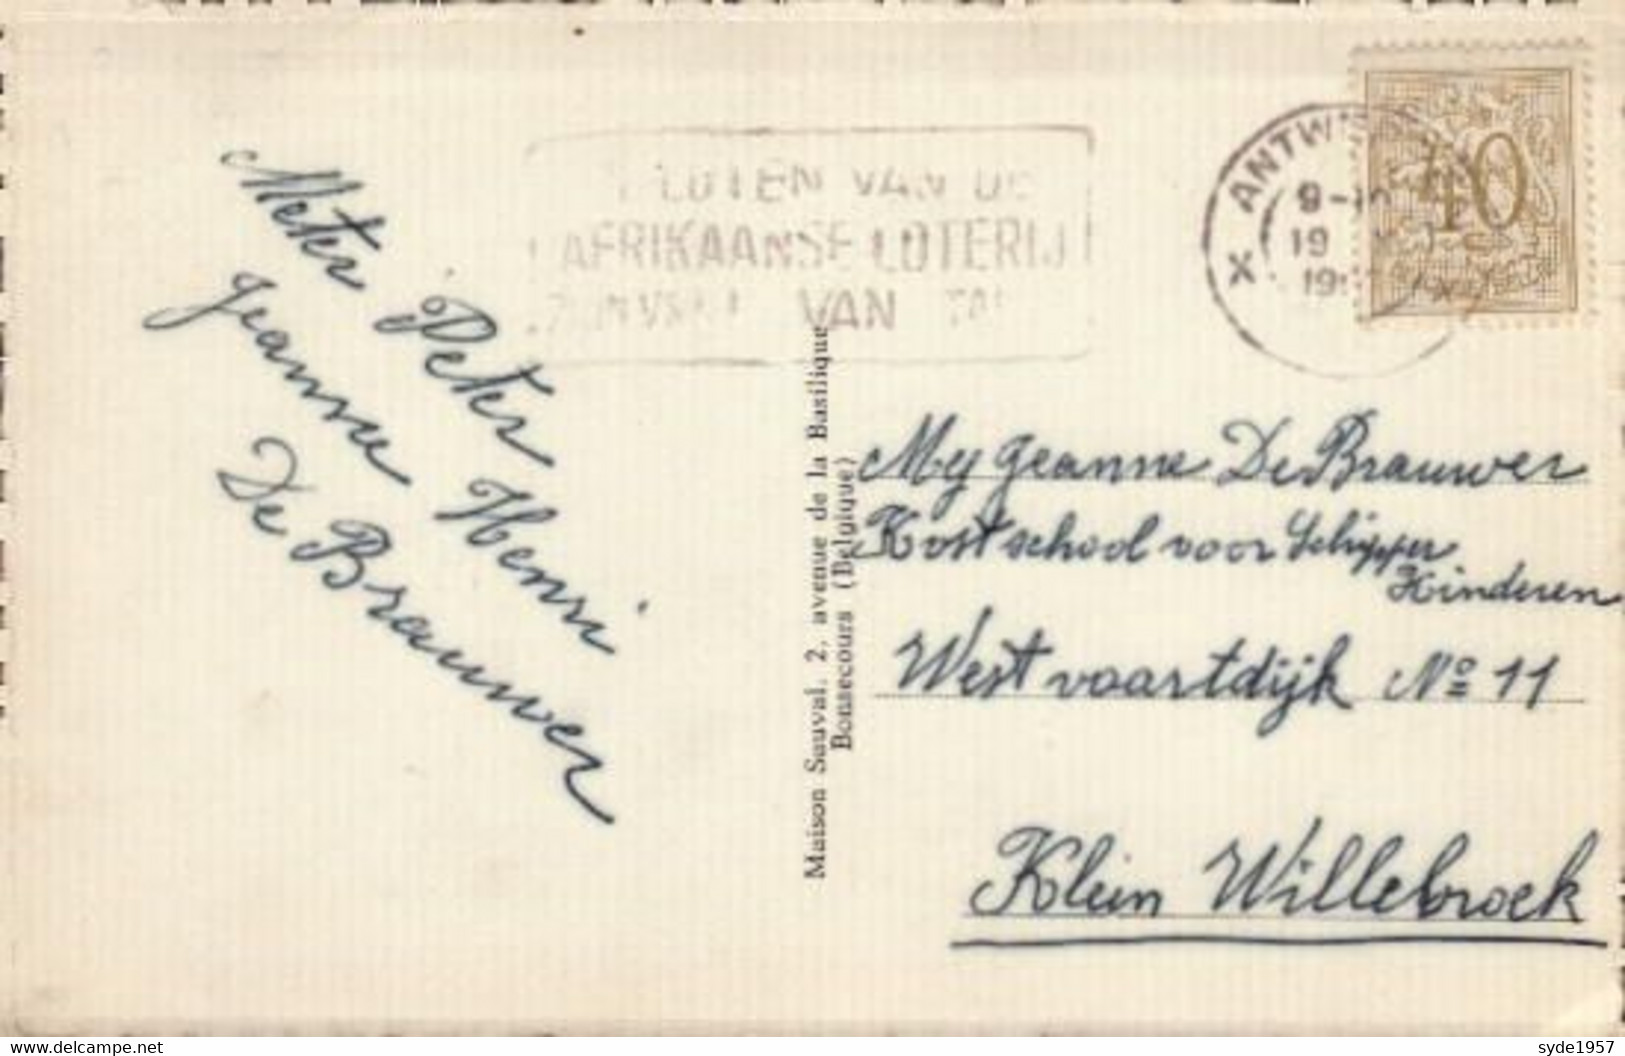 Meter Peter Henri
Jeanne
De Brauwer
LOTEN VAN DE
AFRIKAANSE LOTERIJ
VAN
X ANTW
9-10
19
19
40
Maison Sauval, 2, avenue de la Basilique
Bonsecours (Belgique)
Mej Jeanne De Brauwer
Kostschool voor Schipper
Kinderen
Westvaartdijk Nº 11
Klein Willebroek
www.delcampe.net
syde1957